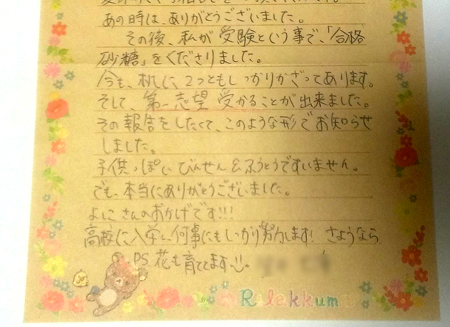 あの時は、ありがとうございました。
その後、私が受験という事で、「合格
砂糖」をくださりました。
今も、机に2つともしっかりかざってあります。
そして、第一志望受かることが出来ました。
その報告をしたくて、このような形でお知らせ
しました。
子供っぽいびんせん&ふうとうですいません。
でも、本当にありがとうございました。
よしこさんのおかげです!!!
高校に入学し何事にもしっかり努力します! さようなら
PS 花も育ててます。
Rilakkuma